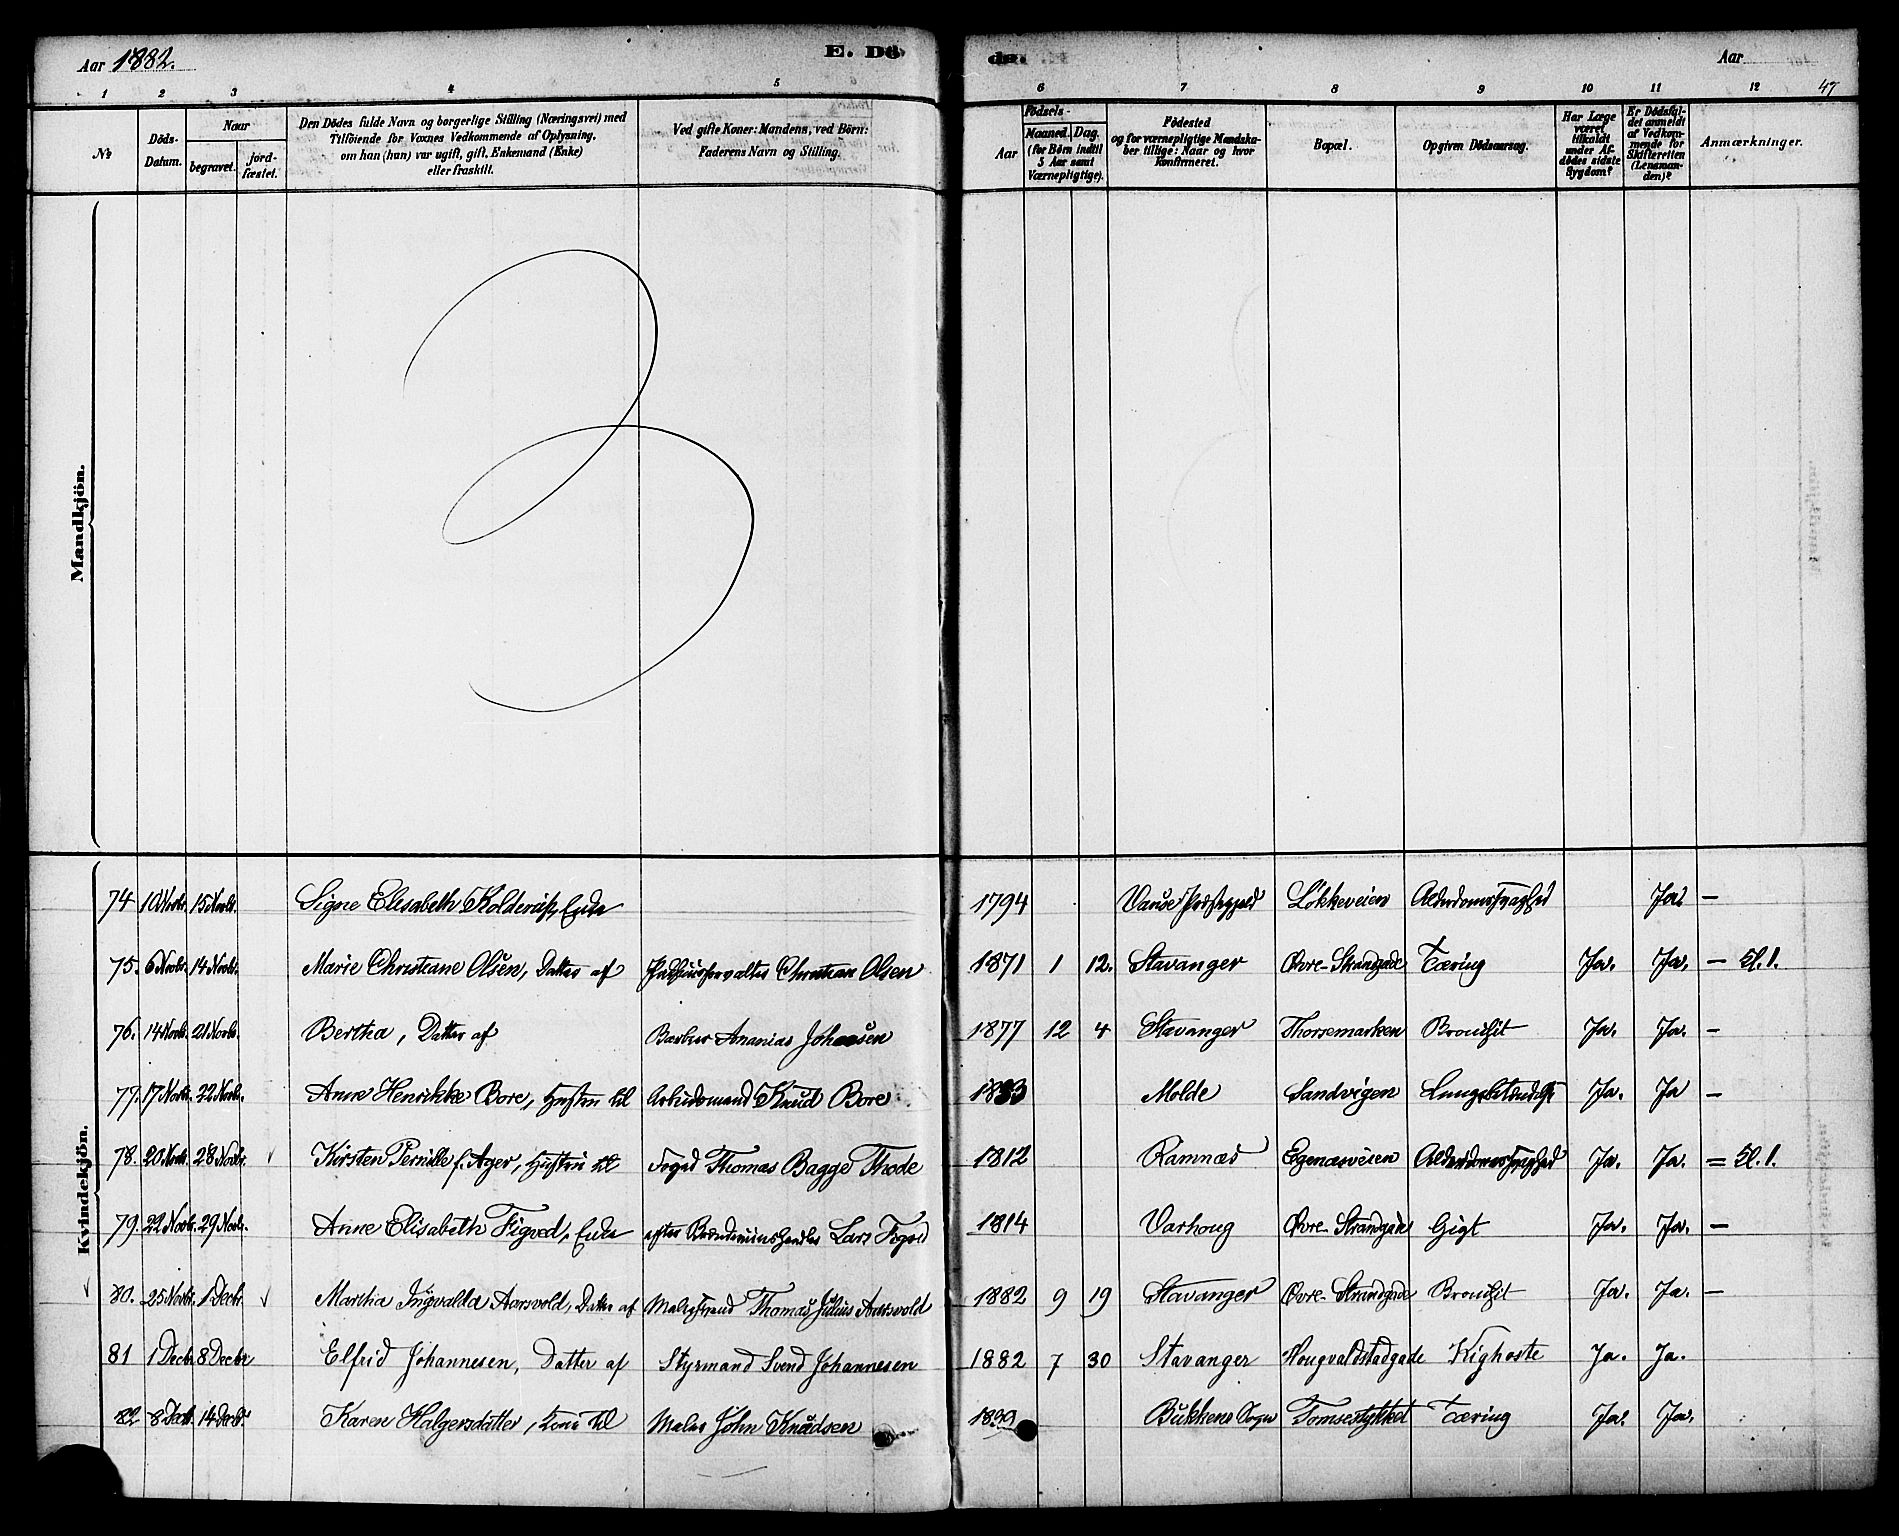 Aar 1882.
E. Dö
de.
Aar
47
1 2 3 4 5 6 7 8 9 10 11 12
№
Döds-
Datum.
Naar
begravet.
jord-
fæstet.
Den Dödes fulde Navn og borgerlige Stilling (Næringsvei) med
Tilföiende for Voxnes Vedkommende af Oplysning,
om han (hun) var ugift, gift, Enkemand (Enke)
eller fraskilt.
Ved gifte Koner: Mandens, ved Börn:
Faderens Navn og Stilling.
Födsels-
Aar
Maaned. Dag.
(for Börn indtil
5 Aar samt
Værnepligtige).
Födested
og for værnepligtige Mandska-
ber tillige: Naar og hvor
konfirmeret.
Bopæl.
Opgiven Dödsaarsag.
Har Læge
været
tilkaldt
under Af-
dödes sidste
Sygdom?
Er Dödsfal-
det anmeldt
af Vedkom-
mende for
Skifteretten
(Lensman-
den)?
Anmærkninger.
Mandkjön.
Kvindekjön.
74 10 Novbr. 15 Novbr. Signe Elisabeth Kolderup, Enke 1794 Vanse Præstegjeld Løkkeveien Alderdomssvaghed Ja. —
75. 6 Novbr. 14 Novbr. Marie Christiane Olsen, Datter af Christian Olsen 1871 1 12. Stavanger Øvre Strandgade Tæring Ja. Ja. — Kl. 1.
76. 14 Novbr. 21 Novbr. Bertha, Datter af Ananias Johnsen 1877 12 4 Stavanger Thorsemarken Bronchit Ja. Ja. —
77. 17 Novbr. 22 Novbr. Anne Henrikke Bore, Hustru til Arbeidsmand Knud Bore 1833 Molde Sandvigen Lungebetændelse Ja. Ja —
78. 20 Novbr. 28 Novbr. Kirsten Pernille f. Ager, Hustru til Foged Thomas Bagge Thode 1812 Ramnæs Egenæsveien Alderdomssvaghed Ja. Ja. = Kl. 1.
79. 22 Novbr. 29 Novbr. Anne Elisabeth Figved, Enke efter Lars Figved 1814 Varhoug Øvre Strandgade Gigt Ja. Ja. —
80. 25 Novbr. 1 Decbr. Martha Ingvalda Aarsvold, Datter af Thomas Julius Aarsvold 1882 9 19 Stavanger Øvre Strandgade Bronchit Ja. Ja. —
81 1 Decbr. 8 Decbr Elfrid Johannesen, Datter af Styrmand Svend Johannesen 1882 7 30 Stavanger Hougvaldstadgade Kighoste Ja. Ja.
82 8 Decbr. 14 Decbr Karen Halgersdatter, Kone til Maler John Knudsen Bukkens Sogn Tomsestykket Tæring Ja. Ja.